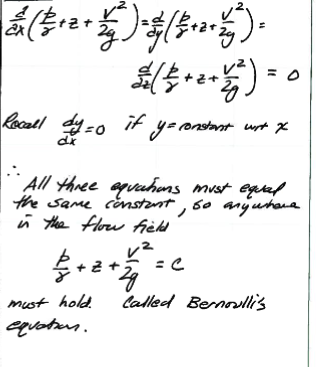 d/dx (p/γ + z + V²/2g) = d/dy (p/γ + z + V²/2g) =
d/dz (p/γ + z + V²/2g) = 0
Recall dy/dx = 0 if y = constant wrt x
∴
All three equations must equal
the same constant, so anywhere
in the flow field
p/γ + z + V²/2g = C
must hold. Called Bernoulli's
equation.